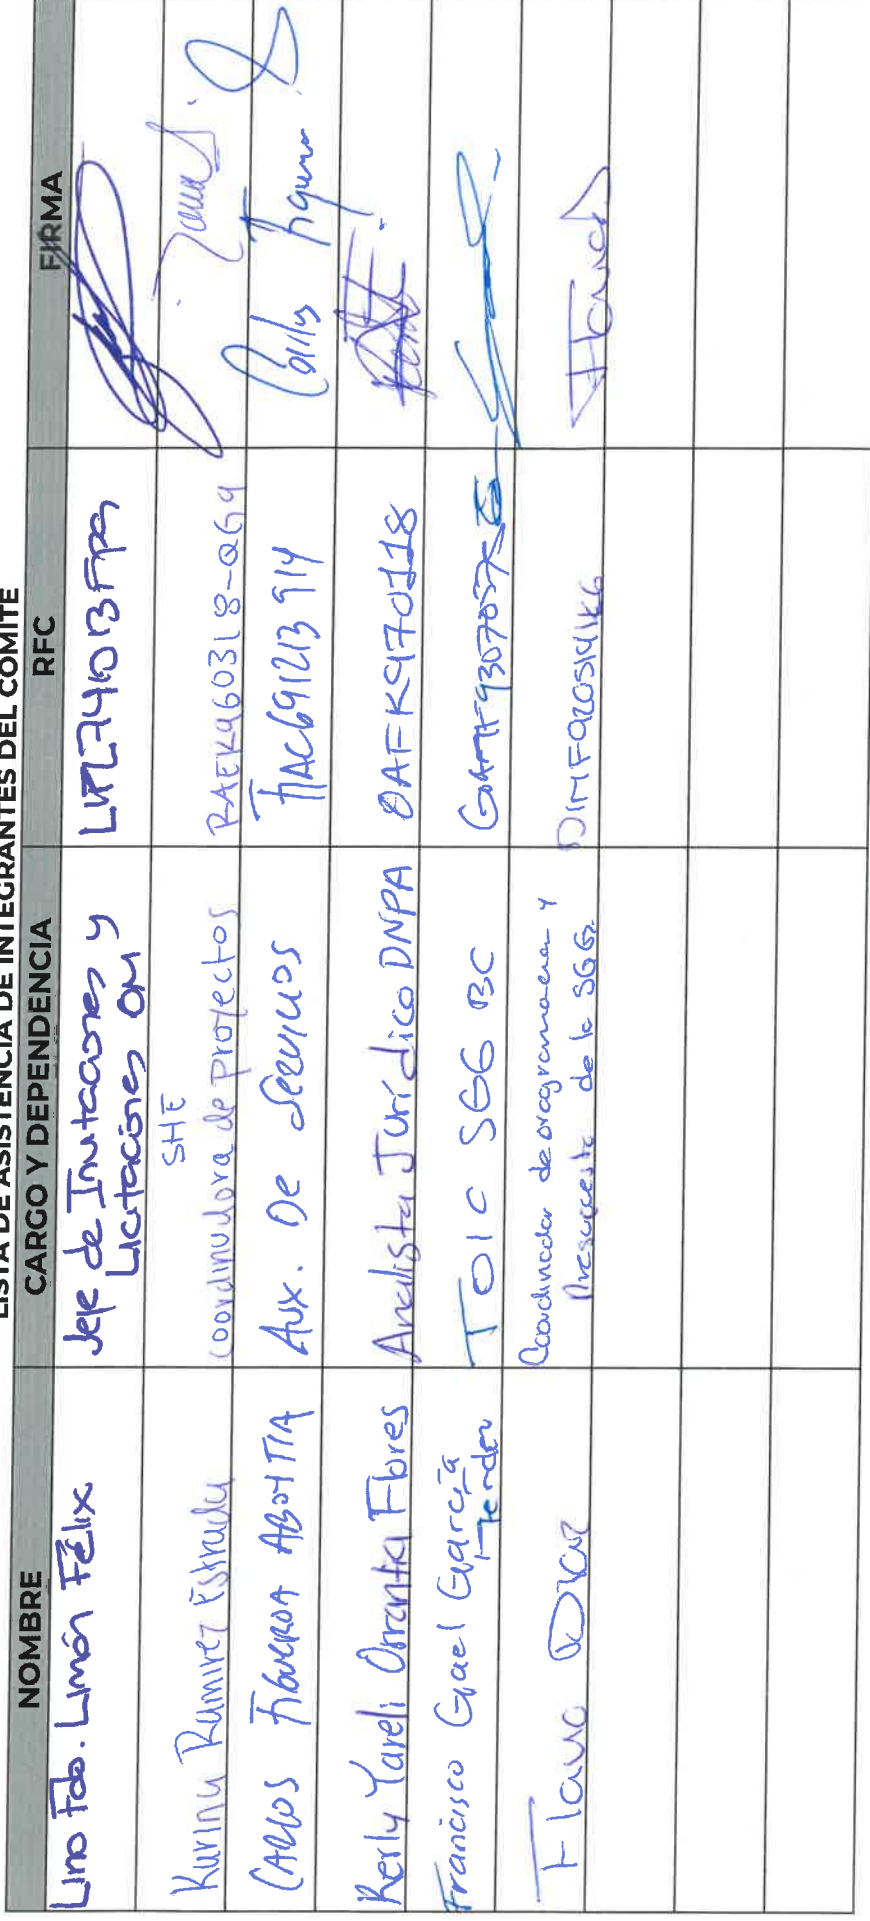 LISTA DE ASISTENCIA DE INTEGRANTES DEL COMITÉ
NOMBRE CARGO Y DEPENDENCIA RFC FIRMA
Lino Fdo. Limón Félix Jefe de Invitaciones y
Licitaciones OM
SHE
Karina Ramirez Estrada Coordinadora de Proyectos RAEK960318-QG9
CARLOS FIGUEROA ABOYTIA Aux. De Servicios FIAC691213 914 Carlos Figueroa
Kerly Yareli Orrantia Flores Analista Jurídico DNPA OAFK970118
Francisco Gael García TOIC SGG BC
Flavio Diaz Coordinador de programacion y
Presupuesto de la SGG. DIMF9205141K6